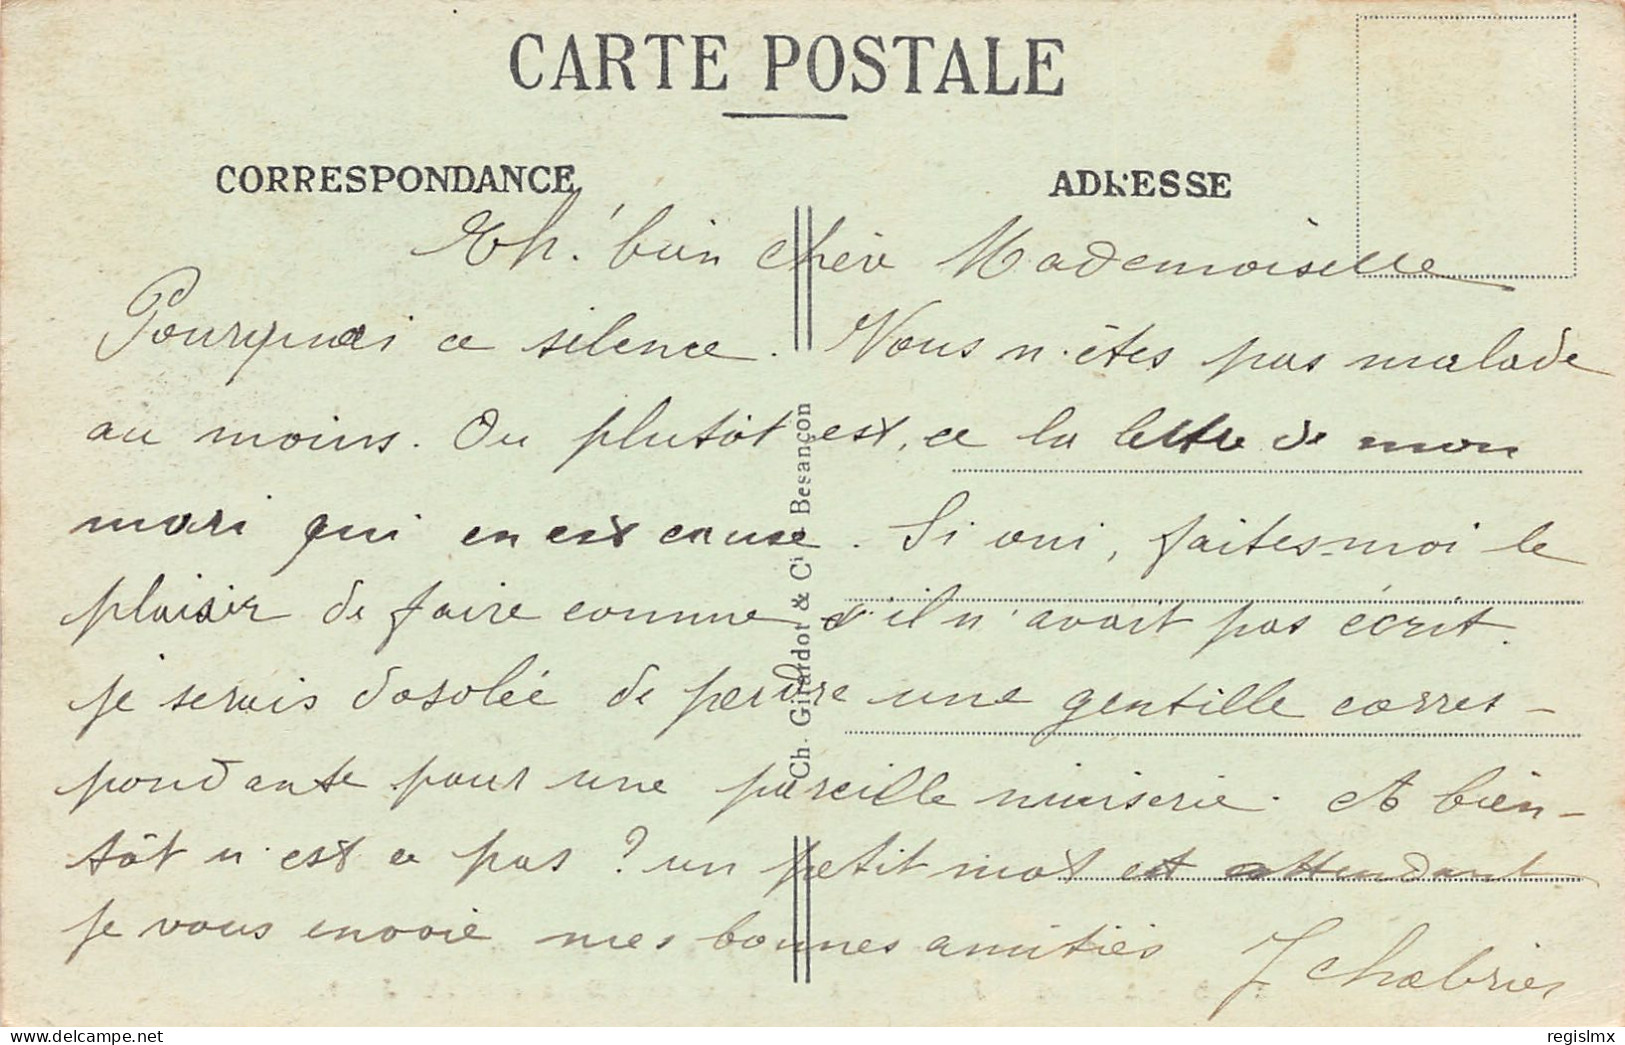 CARTE POSTALE
CORRESPONDANCE
ADRESSE
Eh! bien chère Mademoiselle
Pourquoi ce silence. Vous n'êtes pas malade
au moins. Ou plutôt est-ce la lettre de mon
mari qui en est cause. Si oui, faites-moi le
plaisir de faire comme s'il n'avait pas écrit.
je serais désolée de perdre une gentille corres-
pondante pour une pareille niaiserie. A bien-
tôt n'est ce pas ? un petit mot et attendant
je vous envoie mes bonnes amitiés J Chabrier
Ch. Girardot & Cie Besançon
delcampe.net
regislmx